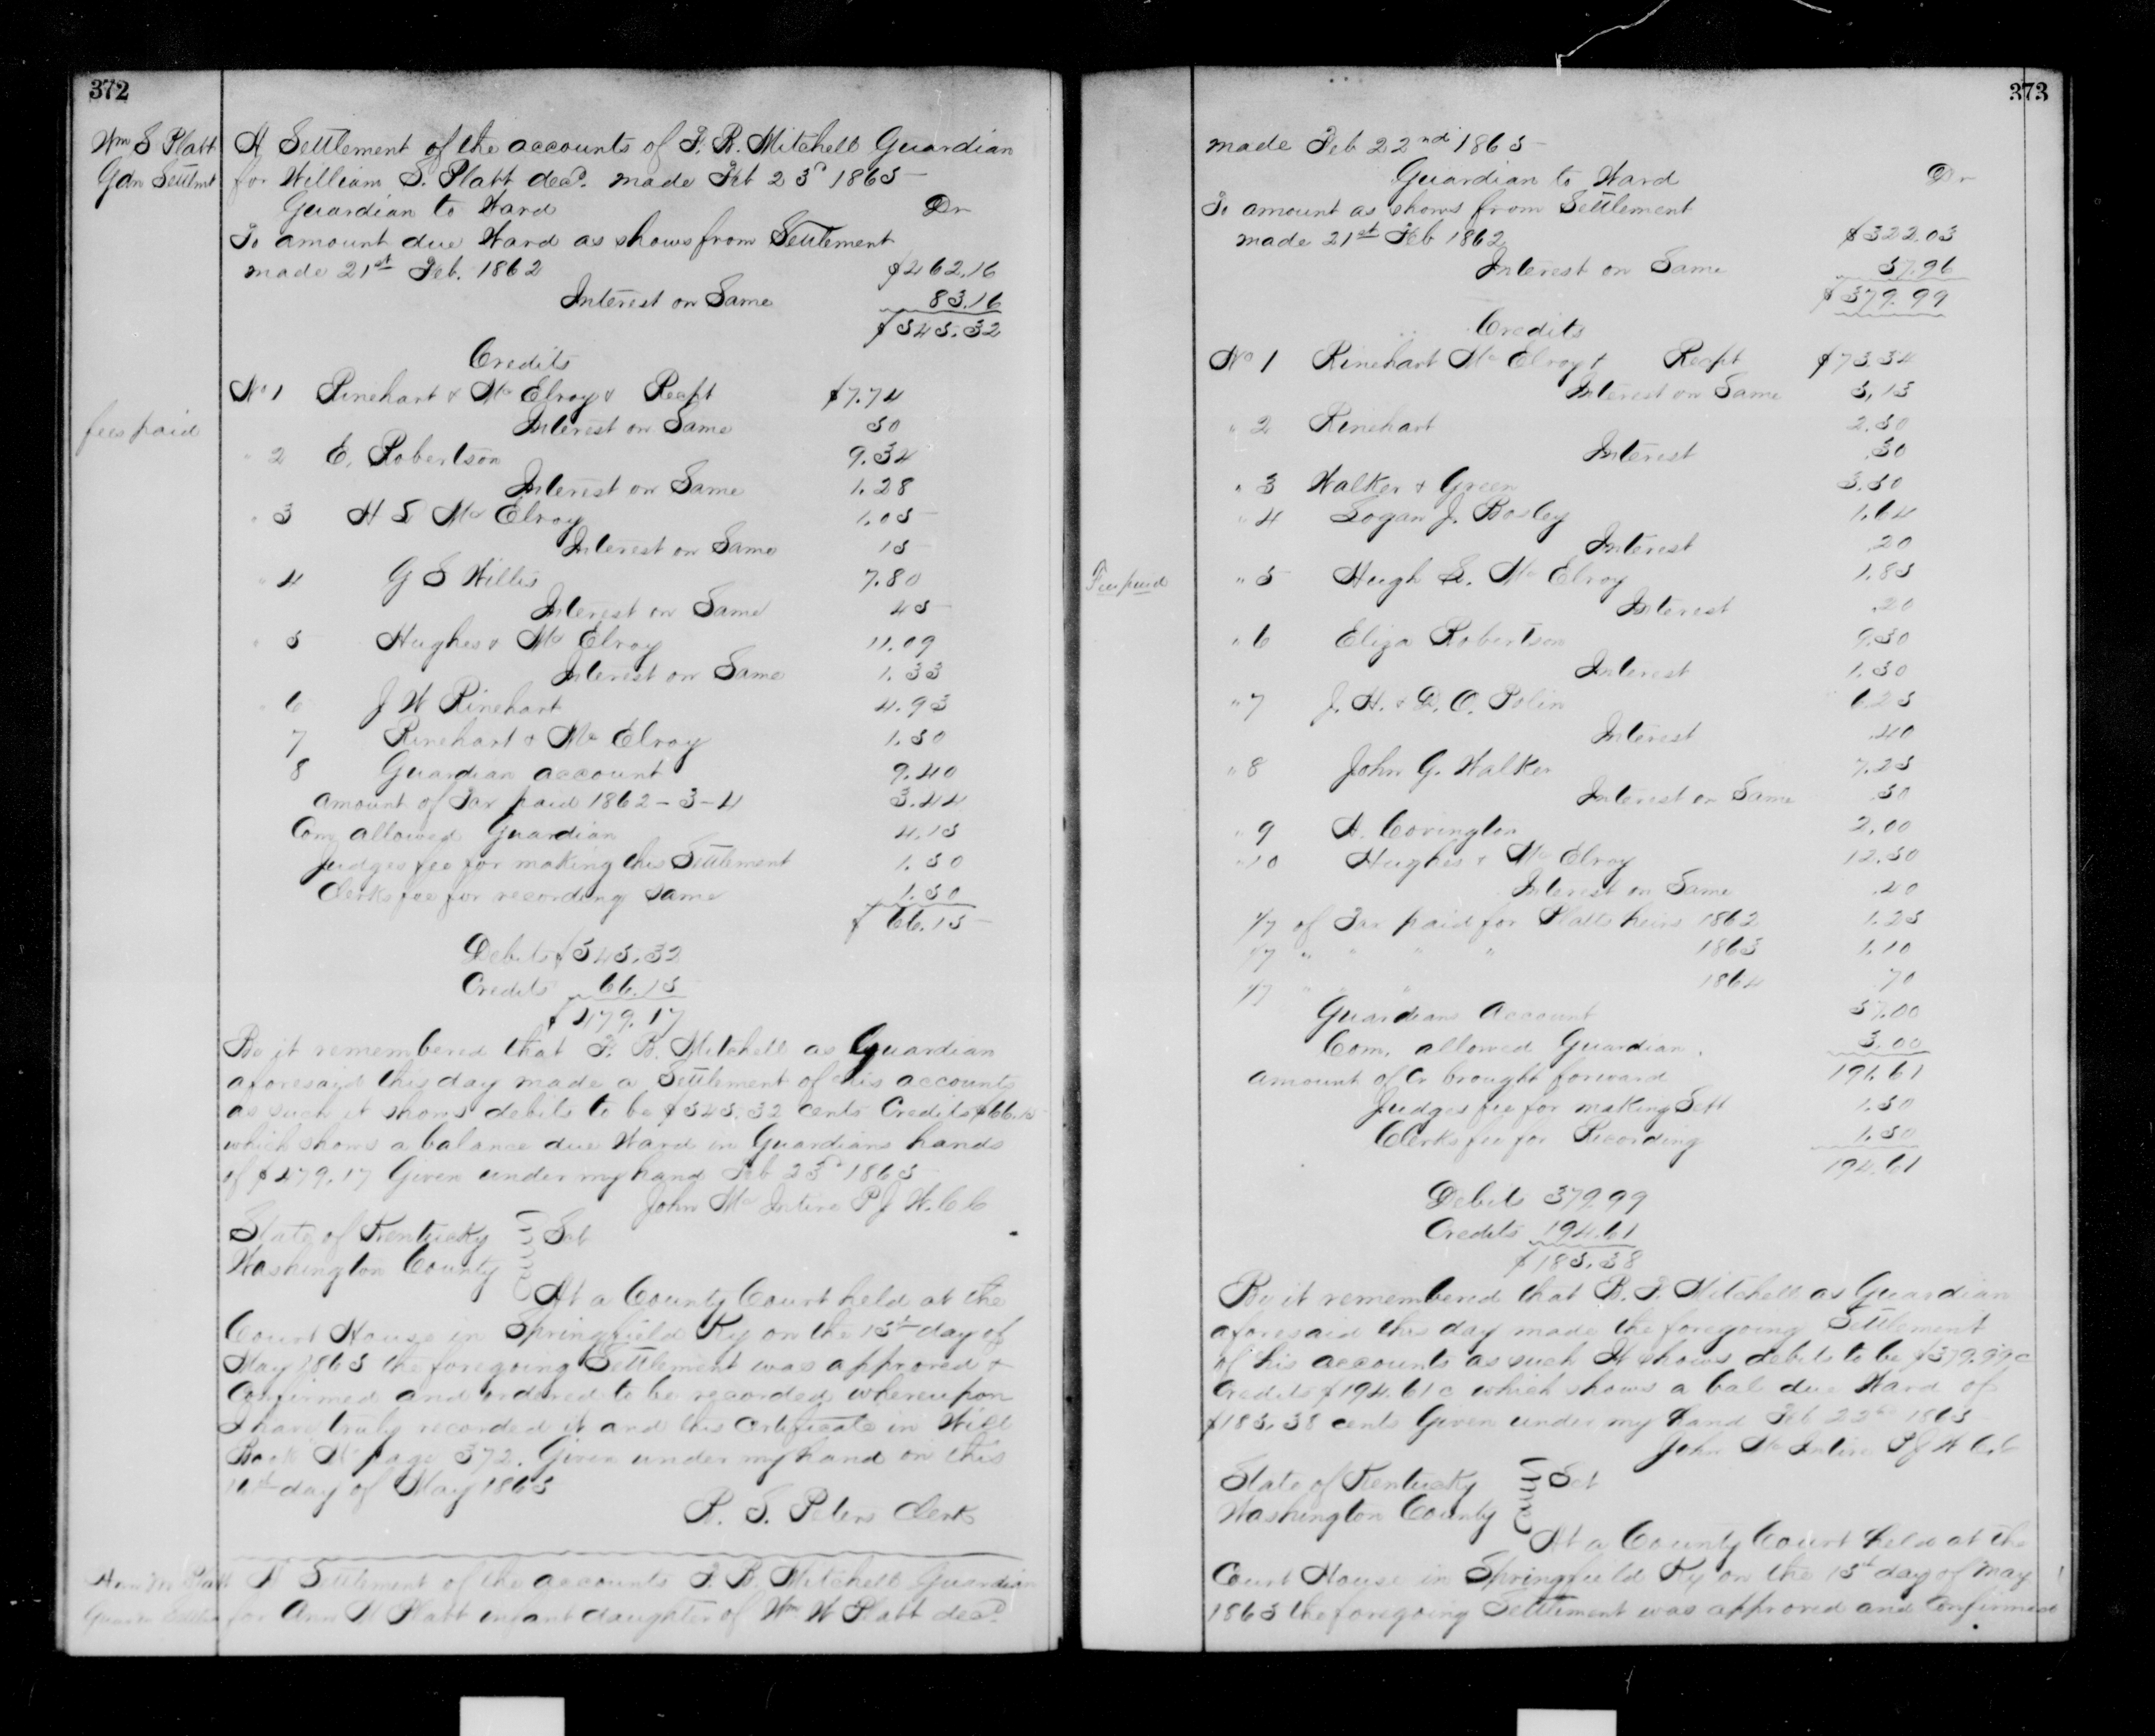 372
Wm S Platt
Gdn Settlmt
A Settlement of the accounts of F. B. Mitchell Guardian
for William S. Platt decd. made Feb 23d 1865
Guardian to Ward Dr
To amount due Ward as shows from Settlement
made 21st Feb. 1862 $462.16
Interest on Same 83.16
$545.32
Credits
fees paid
No 1 Rinehart & McElroy & Recpt $7.74
Interest on Same 50
" 2 E. Robertson 9.34
Interest on Same 1.28
" 3 H S McElroy 1.05
Interest on Same 15
" 4 G S Willis 7.80
Interest on Same 45
" 5 Hughes & McElroy 11.09
Interest on Same 1.33
" 6 J W Rinehart 4.93
7 Rinehart & McElroy 1.50
8 Guardian account 9.40
amount of Tax paid 1862-3-4 3.44
Com allowed Guardian 4.15
Judges fee for making this Settlement 1.50
Clerks fee for recording same 1.50
$66.15
Debits $545.32
Credits 66.15
$479.17
Be it remembered that F. B. Mitchell as Guardian
aforesaid this day made a Settlement of his accounts
as such it shows debits to be $545.32 cents Credits $66.15
which shows a balance due Ward in Guardians hands
of $479.17 Given under my hand Feb 23d 1865
John McIntire P J W.C.C
State of Kentucky } Sct
Washington County
At a County Court held at the
Court House in Springfield Ky on the 15th day of
May 1865 the foregoing Settlement was approved &
Confirmed and ordered to be recorded whereupon
I have truly recorded it and this Certificate in Will
Book page 372. Given under my hand on this
16th day of May 1865
R. S. Peters Clerk
Ann M Platt
Guardn Settlmt
A Settlement of the accounts F. B. Mitchell Guardian
for Ann M Platt infant daughter of Wm W Platt decd
373
made Feb 22nd 1865
Guardian to Ward Dr
To amount as shows from Settlement
made 21st Feb 1862 $322.03
Interest on Same 57.96
$379.99
Credits
No 1 Rinehart McElroy & Recpt $73.34
Interest on Same 5,15
" 2 Rinehart 2.50
Interest .30
" 3 Walker & Green 3.50
" 4 Logan J. Bosley 1.64
Interest .20
Fees paid
" 5 Hugh S. McElroy 1.85
Interest .20
" 6 Eliza Robertson 9.50
Interest 1.30
" 7 J. H. & D. O. Polin 6.25
Interest .40
" 8 John G. Walker 7.25
Interest on Same .50
" 9 A. Covington 2.00
" 10 Hughes & McElroy 12.50
Interest on Same .40
1/7 of Tax paid for Platts heirs 1862 1.25
1/7 " " " " 1863 1.10
1/7 " " " 1864 70
Guardians Account 57.00
Com. allowed Guardian. 3.00
amount of Cr brought forward 191.61
Judges fee for making Sett 1.50
Clerks fee for Recording 1.50
194.61
Debits 379.99
Credits 194.61
$185.38
Be it remembered that B. F. Mitchell as Guardian
aforesaid this day made the foregoing Settlement
of his accounts as such It shows debits to be $379.99c
Credits $194.61c which shows a bal due Ward of
$185.38 cents Given under my hand Feb 1865
John McIntire P J W C.C
State of Kentucky } Sct
Washington County
At a County Court held at the
Court House in Springfield Ky on the 15th day of May
1865 the foregoing Settlement was approved and Confirmed